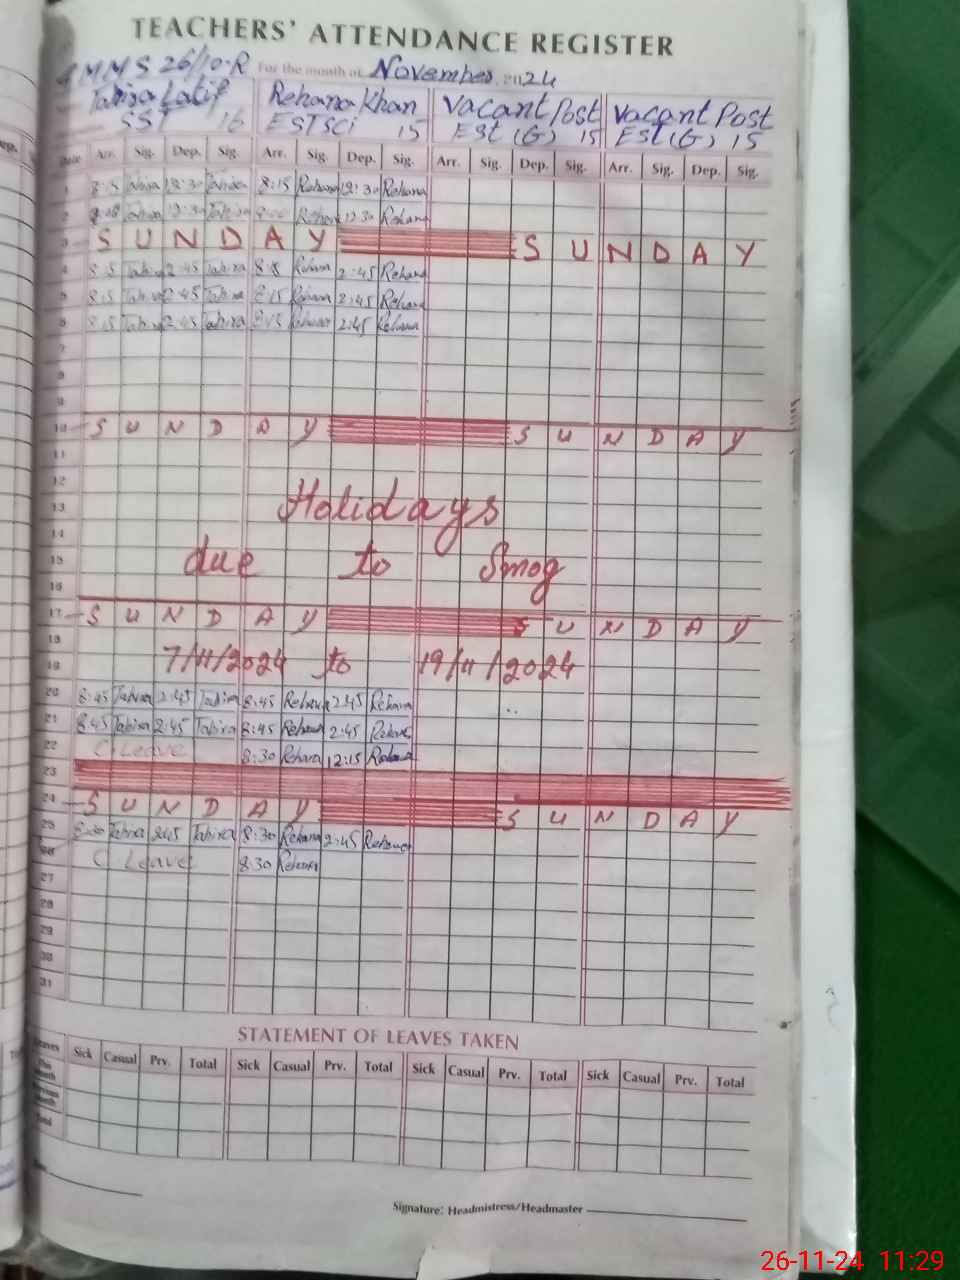 TEACHERS' ATTENDANCE REGISTER
MMS 26/10-R For the month of November 2024
Tahira Latif Rehana Khan Vacant Post Vacant Post
SST 16 ESTSci 15 Est (G) 15 Est (G) 15
Arr. Sig. Dep. Sig. Arr. Sig. Dep. Sig. Arr. Sig. Dep. Sig. Arr. Sig. Dep. Sig.
1 8:15 Tahira 12:30 Tahira 8:15 Rehana 12:30 Rehana
2 Tahira 12:30 Tahira Rehana 12:30 Rehana
3 SUNDAY SUNDAY
4 8:15 Tahira 2:45 Tahira 8:15 Rehana 2:45 Rehana
5 8:15 Tahira 2:45 Tahira 8:15 Rehana 2:45 Rehana
6 8:15 Tahira 2:45 Tahira 8:15 Rehana 2:45 Rehana
7
8
9
10 SUNDAY SUNDAY
11
12
13 Holidays
14
15 due to Smog
16
17 SUNDAY SUNDAY
18
19 7/11/2024 to 19/11/2024
20 8:45 Tahira 2:45 Tahira 8:45 Rehana 2:45 Rehana
21 8:45 Tahira 2:45 Tahira 8:45 Rehana 2:45 Rehana
22 C Leave 8:30 Rehana 12:15 Rehana
23
24 SUNDAY SUNDAY
25 8:30 Tahira 2:45 Tahira 8:30 Rehana 2:45 Rehana
26 C Leave 8:30 Rehana
27
28
29
30
31
STATEMENT OF LEAVES TAKEN
Leaves Sick Casual Prv. Total Sick Casual Prv. Total Sick Casual Prv. Total Sick Casual Prv. Total
Signature: Headmistress/Headmaster
26-11-24 11:29